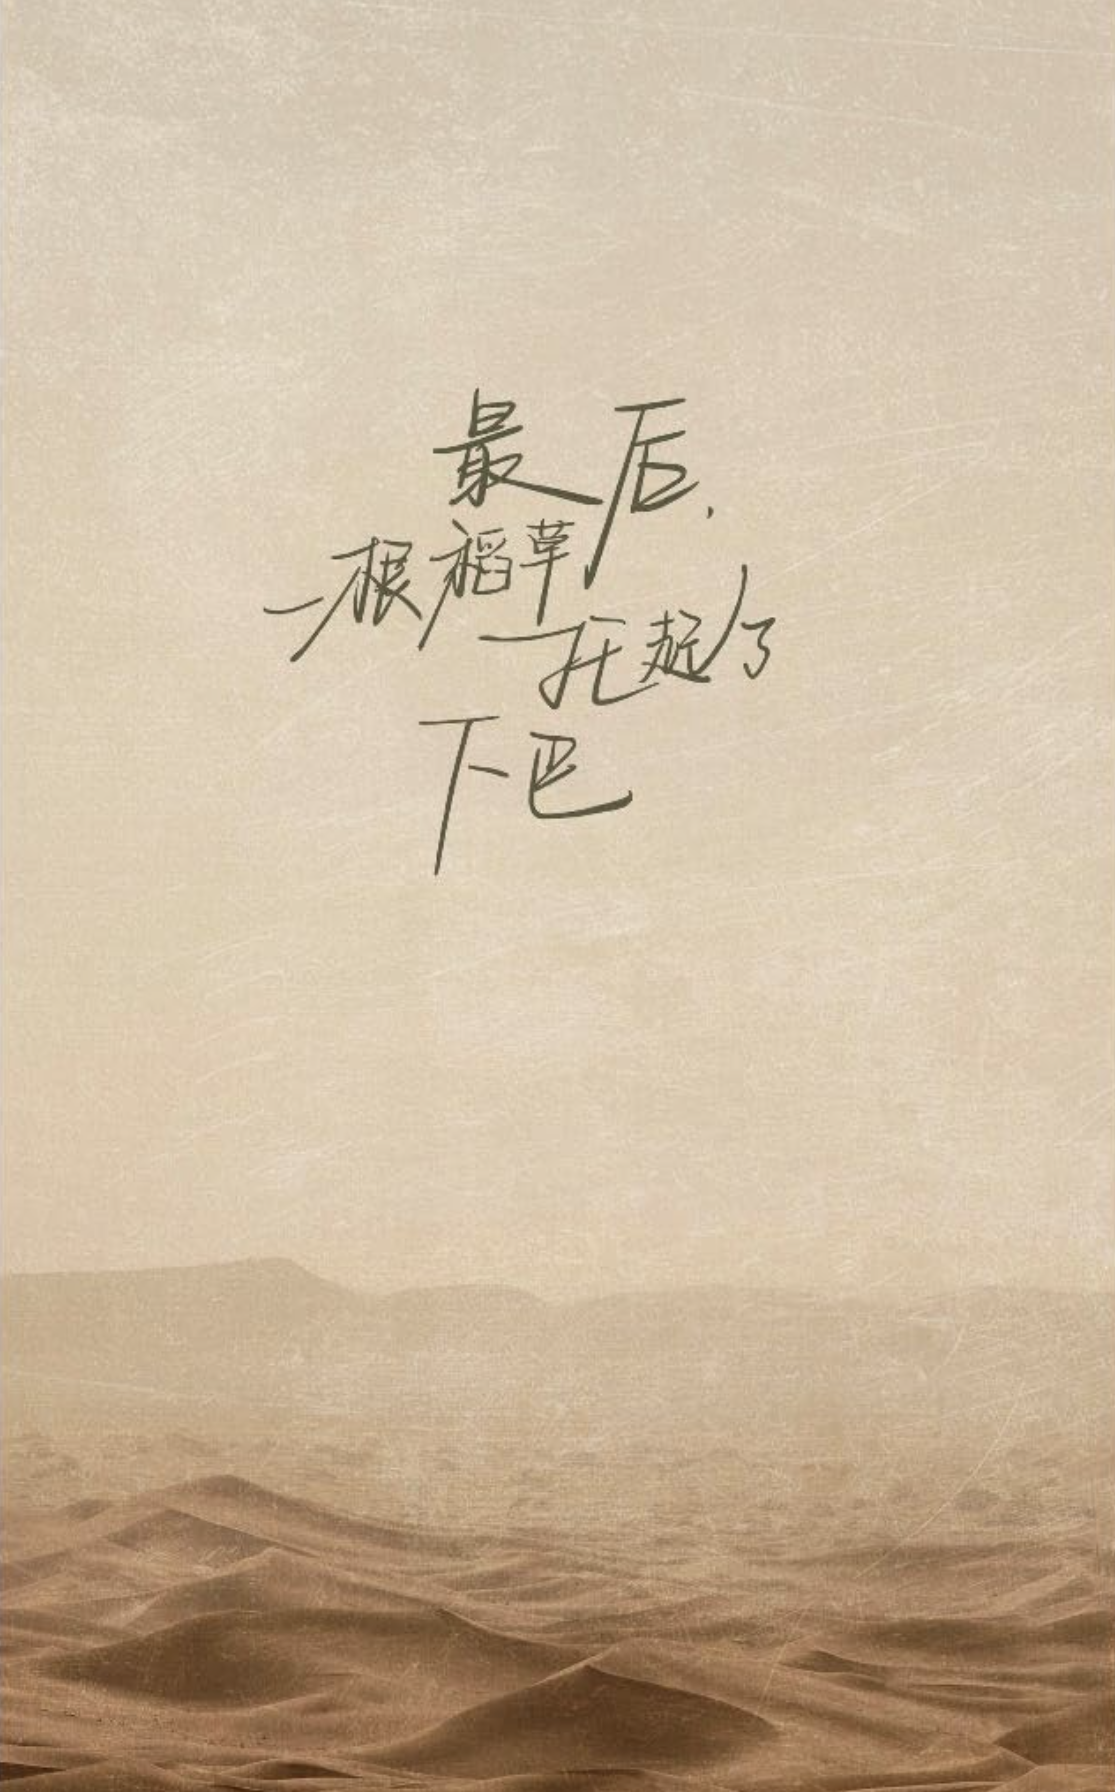 最后，
一根稻草
托起了
下巴